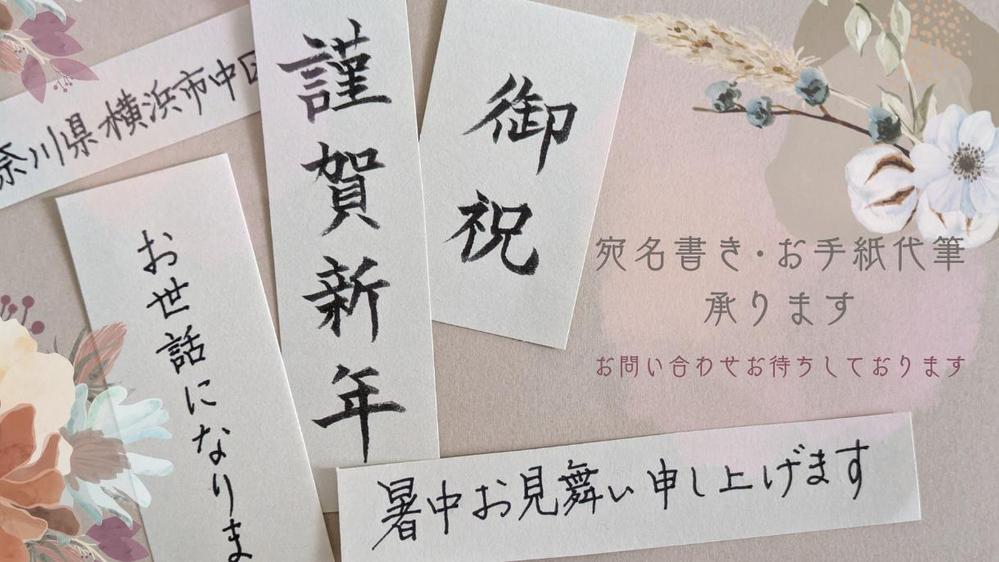 奈川県横浜市中区
謹賀新年
御祝
お世話になりま
宛名書き・お手紙代筆
承ります
お問い合わせお待ちしております
暑中お見舞い申し上げます